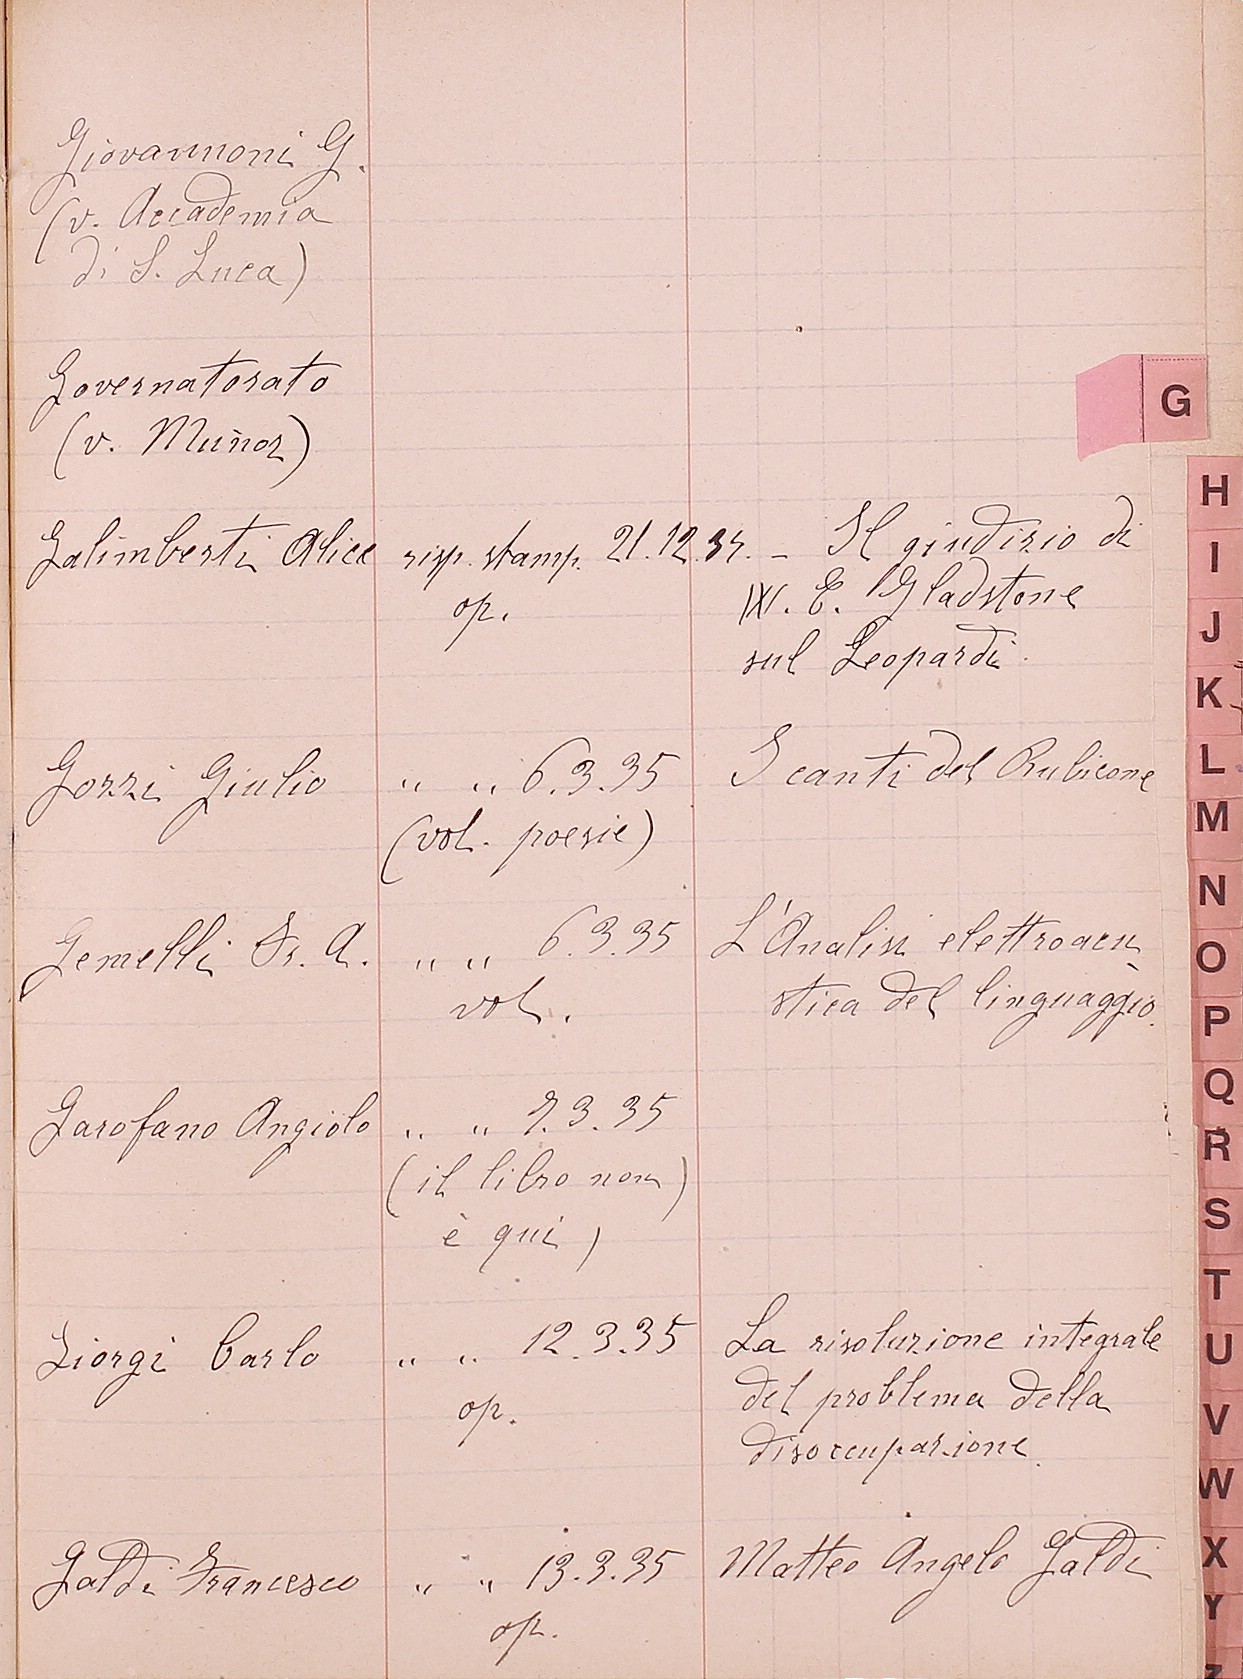 Giovannoni G.
(v. Accademia
di S. Luca)
Governatorato
(v. Muñoz)
G
Galimberti Alice risp. stamp. 21.12.34. – Il giudizio di
op. W. E. Gladstone
sul Leopardi.
Gozzi Giulio " " 6.3.35 I canti del Rubicone
(vol. poesie)
Gemelli Fr. A. " " 6.3.35 L'Analisi elettroacu
vol. stica del linguaggio.
Garofano Angiolo " " 7.3.35
(il libro non)
è qui)
Giorgi Carlo " " 12.3.35 La risoluzione integrale
op. del problema della
disoccupazione.
Galdi Francesco " " 13.3.35 Matteo Angelo Galdi
op.
H
I
J
K
L
M
N
O
P
Q
R
S
T
U
V
W
X
Y
Z